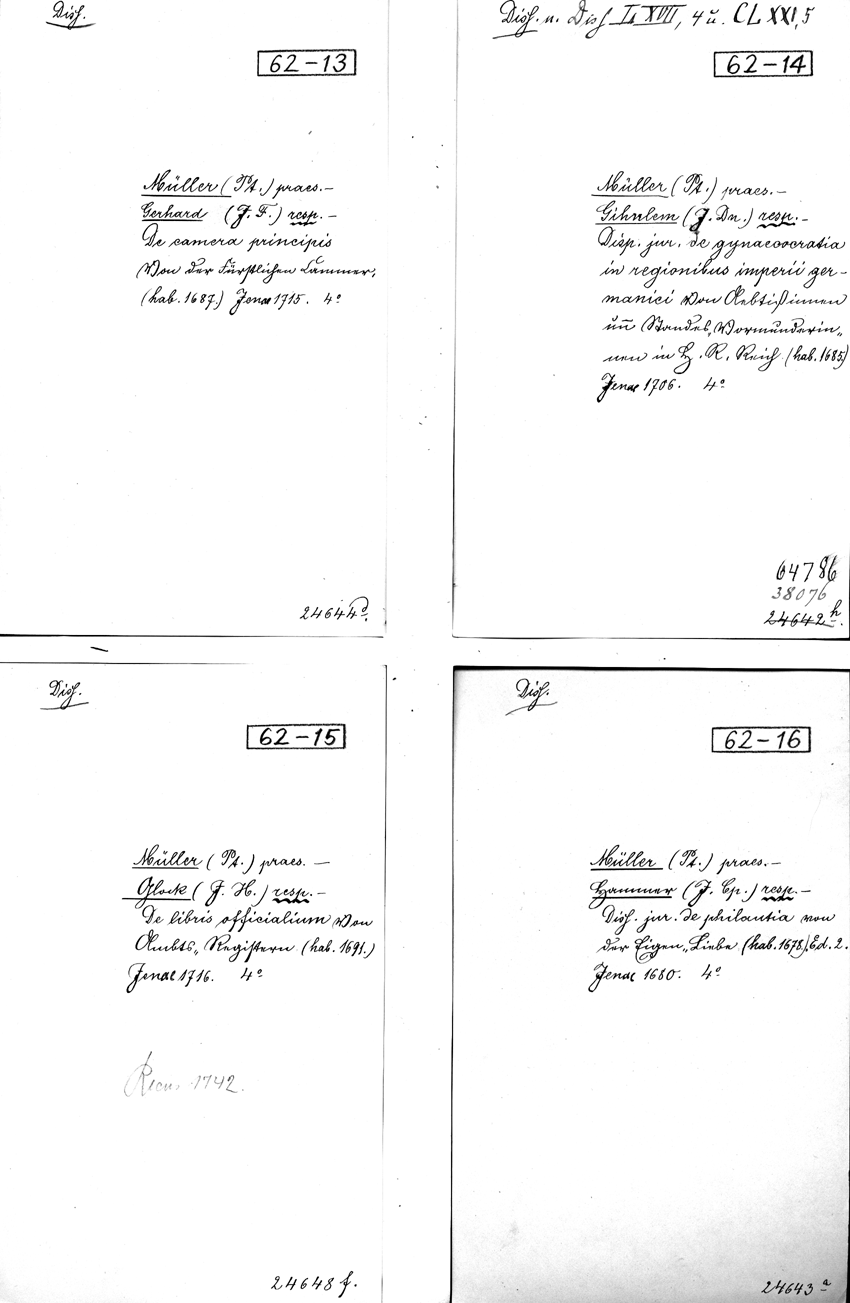 Diss.
62-13
Müller (Pt.) praes. –
Gerhard (J. F.) resp. –
De camera principis
Von der Fürstlichen Cammer.
(hab. 1687.) Jenae 1715. 4°
24644d.
Diss. u. Diss. LXVII, 4 u. CLXXI,5
62-14
Müller (Pt.) praes. –
Gihulem (J. Dn.) resp. –
Disp. jur. de gynaecocratia
in regionibus imperii ger-
manici von Aebtißinnen
un̄ Standes-Vormünderin-
nen in H. R. Reich (hab. 1685)
Jenae 1706. 4°
64786
38076
24642h.
Diss.
62-15
Müller (Pt.) praes. –
Glock (J. H.) resp. –
De libris officialium von
Ambts-Registern (hab. 1691.)
Jenae 1716. 4°
Recus. 1742.
24648f.
Diss.
62-16
Müller (Pt.) praes. –
Hammer (J. Cp.) resp. –
Diss. jur. de philautia von
der Eigen-Liebe (hab. 1678). Ed. 2.
Jenae 1680. 4°
24643a